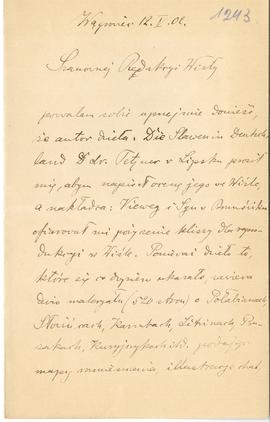 1243
12. V. 02.
Szanownej Redakcyi Wisły
pozwalam sobie uprzejmie donieść,
że autor dzieła: Die Slawen in Deutsch-
land Dr. Tetzner w Lipsku prosił
mię, abym napisał ocenę jego w Wiśle,
a nakładca: Vieweg i Syn w
ofiarował mi pożyczenie kliszy dla repro-
dukcyi w Wiśle. Ponieważ dzieło to,
które się co dopiero ukazało, zawiera
dużo materyału (520 stron) o Połabianach,
Słowińcach, Kaszubach, Litwinach, Pru-
sakach, itd. podając
mapy, illustracye chat,